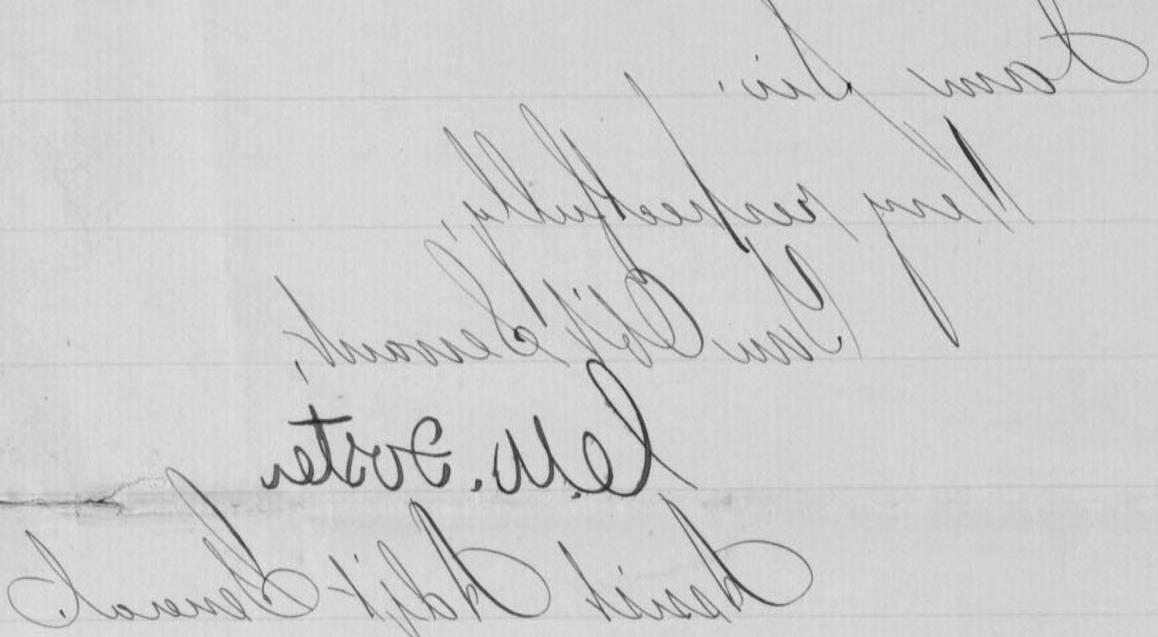 I am, Sir.
Very respectfully,
Your Obd't Servant,
C.W. Foster
Assist Adj't General.